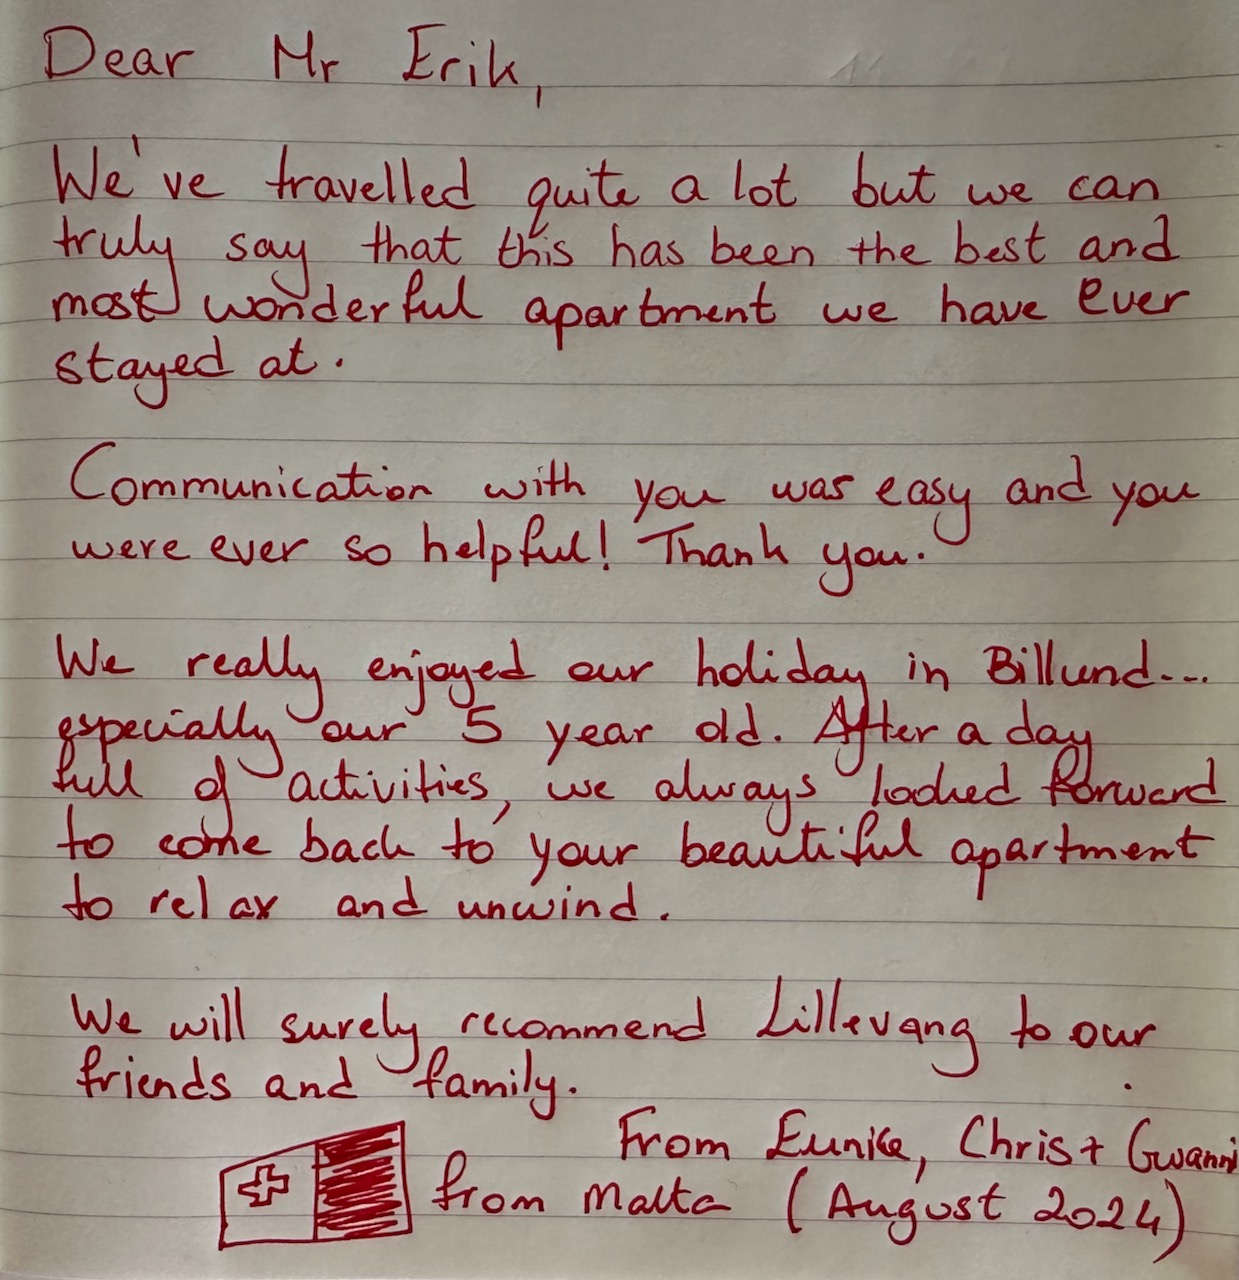 Dear Mr Erik,
We've travelled quite a lot but we can
truly say that this has been the best and
most wonderful apartment we have ever
stayed at.
Communication with you was easy and you
were ever so helpful! Thank you.
We really enjoyed our holiday in Billund...
especially our 5 year old. After a day
full of activities, we always looked forward
to come back to your beautiful apartment
to relax and unwind.
We will surely recommend Lillevang to our
friends and family.
From Eunice, Chris + Gwanni
from Malta (August 2024)